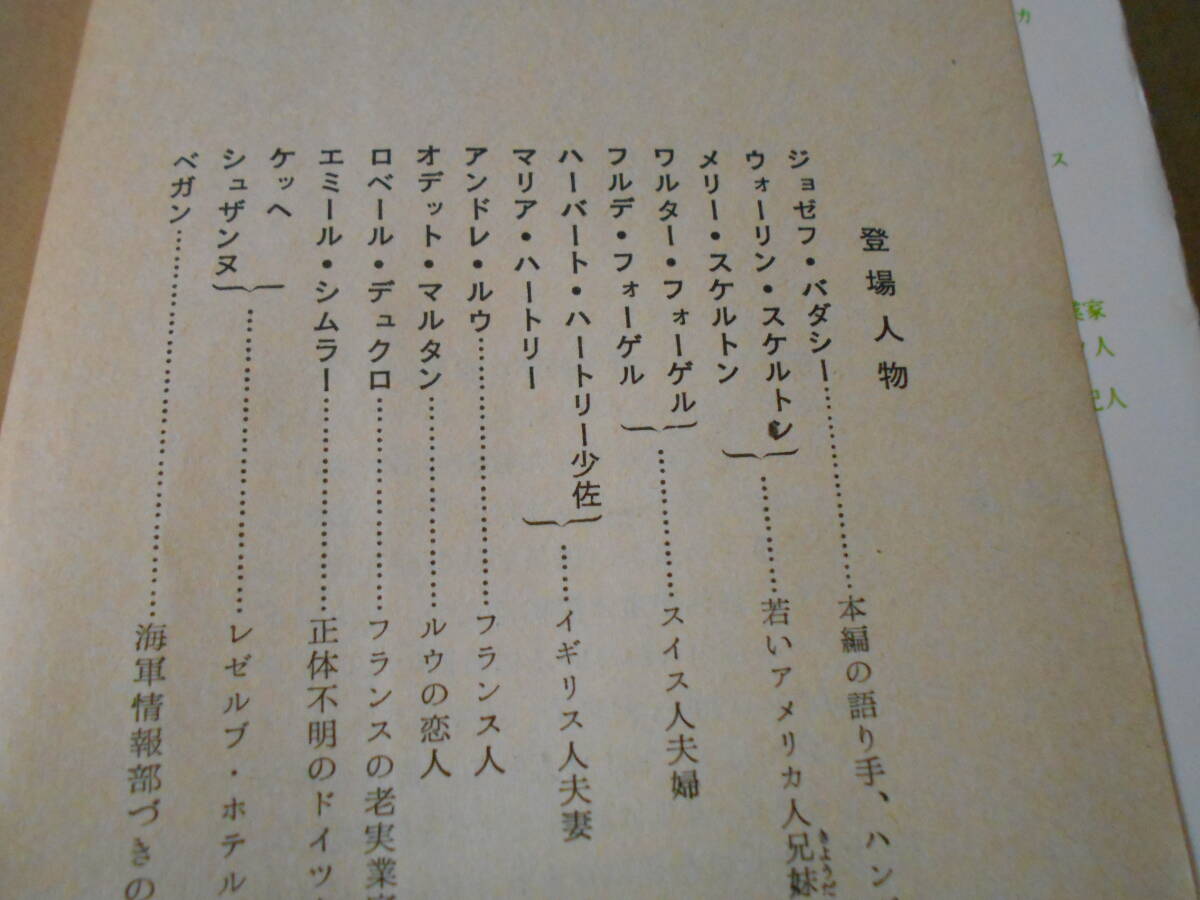 登場人物
ジョゼフ・バダシー……………………本編の語り手、ハン
ウォーリン・スケルトン
メリー・スケルトン
…………若いアメリカ人兄妹
きようだ
ワルター・フォーゲル
フルデ・フォーゲル
……………スイス人夫婦
ハーバート・ハートリー少佐
マリア・ハートリー
……イギリス人夫妻
アンドレ・ルウ…………………………フランス人
オデット・マルタン……………………ルウの恋人
ロベール・デュクロ……………………フランスの老実業
エミール・シムラー……………………正体不明のドイツ
ケッヘ
シュザンヌ
……………………………レゼルブ・ホテル
ベガン……………………………………海軍情報部づきの
カ
ス
業家
人
記人